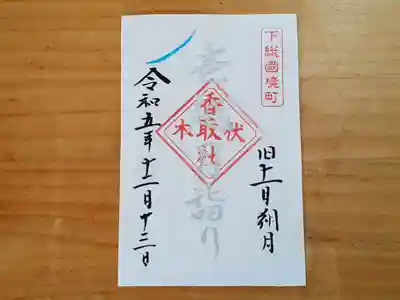 下総國境町
旧十一月朔月
香取社
伏木
詣り
令和五年十二月十三日